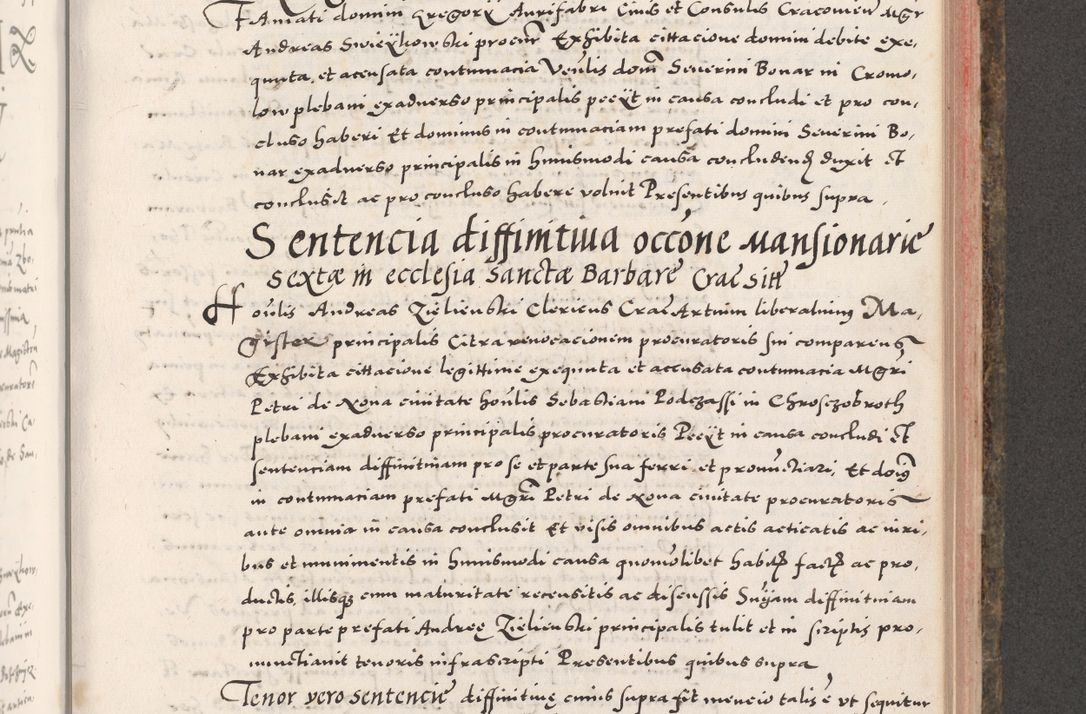 Famati domini Gregorÿ Aurifabri Civis et Consulis Cracovien Mgr
Andreas Swieÿkowski procur Exhibita cittacione domini debite exe,
quuta, et accusata contumacia Venlis domi Severini Bonar in Cromo,
low plebani exadverso principalis peeÿt in causa concludi et pro con,
cluso haberi Et dominus in contumaciam prefati domini Severini Bo,
nar exadverso principalis in huiusmodi causa concludend duxit et
conclusit ac pro concluso habere voluit Presentibus quibus supra.
Sentencia diffinitiva occone Mansionarie
Sextæ in ecclesia Sanctæ Barbare Crac sitæ
Honlis Andreas Zielienski Clericus Crac Artium liberalium Ma,
gister principalis Citra revocacionem procuratoris sui comparens
Exhibita cittacione legittime exequuta et accusata contumacia Mgri
Petri de Nova civitate honlis Sebastiani Podczassi in Chrosczobroth
plebani exadverso principalis procuratoris Peeÿt in causa concludi Et
sentenciam diffinitivam pro se et parte sua ferri, et pronunctiari, Et doing
in contumaciam prefati Mgri Petri de Nova civitate procuratoris
ante omnia in causa conclusit Et visis omnibus actis acticatis ac iuri,
bus et munimentis in huiusmodi causa quomolibet habit fact ac pro,
ductis, illisq cum maturitate recensitis ac discussis Suÿam diffinitivam
pro parte prefati Andreę Zielienski principalis tulit et in scriptis pro,
nunctiavit tenoris infrascripti Presentibus quibus supra
Tenor vero sentencie diffinitivę cuius supra fit mencio talis e ut sequitur